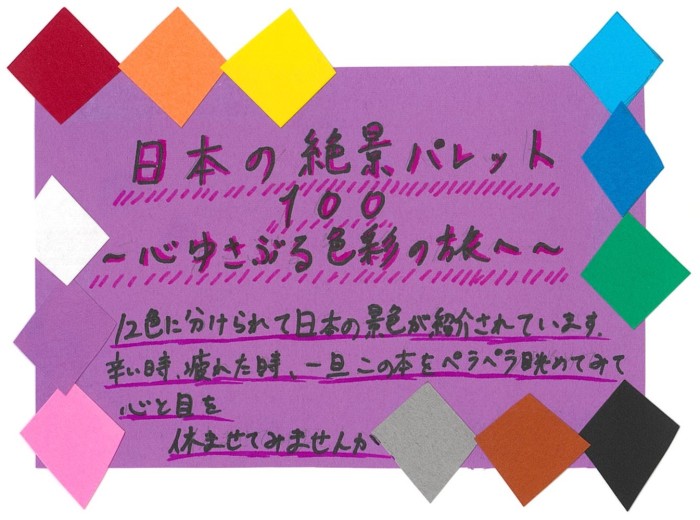 日本の絶景パレット
100
~心ゆさぶる色彩の旅へ~
12色に分けられて日本の景色が紹介されています.
辛い時、疲れた時、一旦この本をペラペラ眺めてみて
心と目を
休ませてみませんか